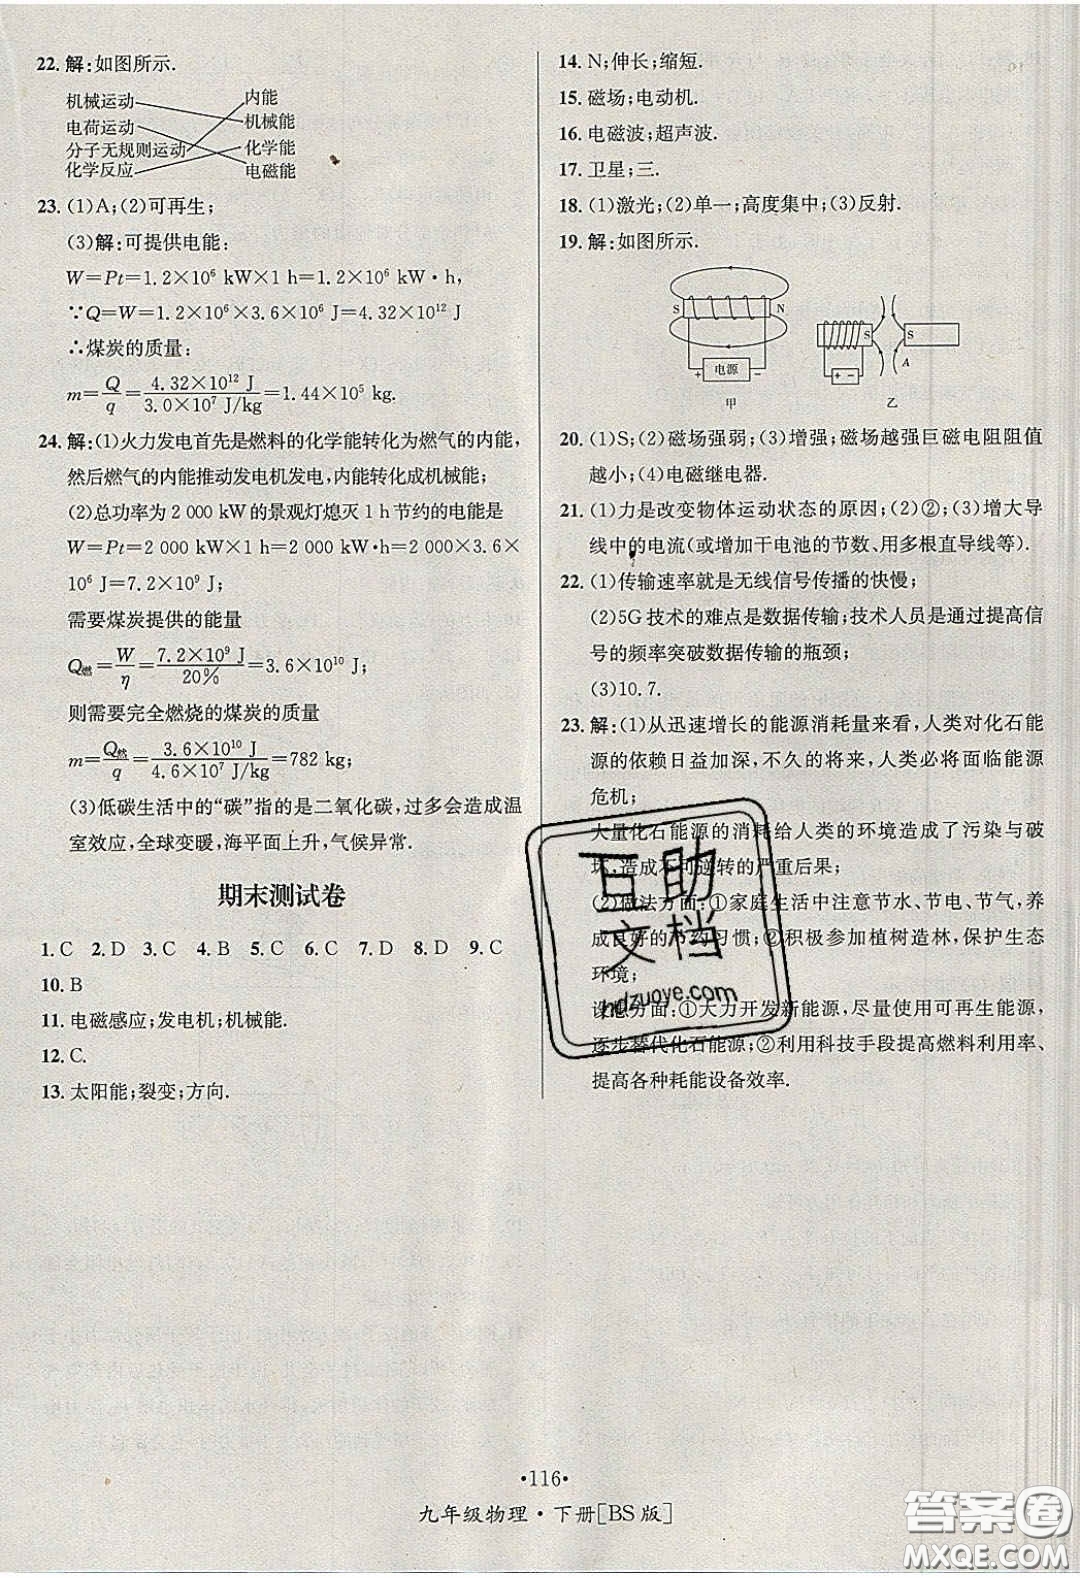 22. 解:如图所示.
机械运动 内能
电荷运动 机械能
分子无规则运动 化学能
化学反应 电磁能
23. (1)A;(2)可再生;
(3)解:可提供电能:
W=Pt=1.2×10⁶ kW×1 h=1.2×10⁶ kW·h,
∵Q=W=1.2×10⁶×3.6×10⁶ J=4.32×10¹² J
∴煤炭的质量:
m=Q/q=4.32×10¹² J/3.0×10⁷ J/kg=1.44×10⁵ kg.
24. 解:(1)火力发电首先是燃料的化学能转化为燃气的内能,
然后燃气的内能推动发电机发电,内能转化成机械能;
(2)总功率为 2 000 kW的景观灯熄灭 1 h节约的电能是
W=Pt=2 000 kW×1 h=2 000 kW·h=2 000×3.6×
10⁶ J=7.2×10⁹ J;
需要煤炭提供的能量
Q燃=W/η=7.2×10⁹ J/20%=3.6×10¹⁰ J;
则需要完全燃烧的煤炭的质量
m=Q燃/q=3.6×10¹⁰ J/4.6×10⁷ J/kg=782 kg;
(3)低碳生活中的“碳”指的是二氧化碳,过多会造成温
室效应,全球变暖,海平面上升,气候异常.
期末测试卷
1. C 2. D 3. C 4. B 5. C 6. C 7. D 8. D 9. C
10. B
11. 电磁感应;发电机;机械能.
12. C.
13. 太阳能;裂变;方向.
14. N;伸长;缩短.
15. 磁场;电动机.
16. 电磁波;超声波.
17. 卫星;三.
18. (1)激光;(2)单一;高度集中;(3)反射.
19. 解:如图所示.
S N
+ 电源 −
甲
S S
A
+ −
乙
20. (1)S;(2)磁场强弱;(3)增强;磁场越强巨磁电阻阻值
越小;(4)电磁继电器.
21. (1)力是改变物体运动状态的原因;(2)②;(3)增大导
线中的电流(或增加干电池的节数、用多根直导线等).
22. (1)传输速率就是无线信号传播的快慢;
(2)5G技术的难点是数据传输;技术人员是通过提高信
号的频率突破数据传输的瓶颈;
(3)10.7.
23. 解:(1)从迅速增长的能源消耗量来看,人类对化石能
源的依赖日益加深,不久的将来,人类必将面临能源
危机;
大量化石能源的消耗给人类的环境造成了污染与破
坏,造成不可逆转的严重后果;
(2)做法方面:①家庭生活中注意节水、节电、节气,养
成良好的节约习惯;②积极参加植树造林,保护生态
环境;
设想方面:①大力开发新能源,尽量使用可再生能源,
逐步替代化石能源;②利用科技手段提高燃料利用率、
提高各种耗能设备效率.
互助
文档
hdzuoye.com
·116·
九年级物理·下册[BS版]
答案圈
MXQE.COM